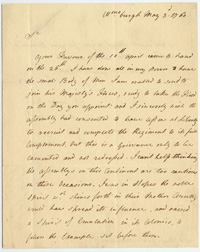 Wmsburgh May 3d 1760
Sir
Your Favour of the 10th April came to hand
on the 28th I have done all in my Power to have
the small Body of Men I am wanted to send to
join his Majesty's Forces, ready to take the Field
on the Day you appoint and I sincerely wish the
Assembly had consented to have given at liberty
to recruit and compleat the Regiment to its full
Complement, but this is a grievance only to be
lamented and not redressed. I cant help thinking
the Assemblys on this Continent are too cautious
on these Occasions. I was in Hopes the noble
Spirit wh shews forth in their Mother Country
would have spread its influence, and raised
a Spirit of Emulation in its Colonies, to
follow the Example set before them.